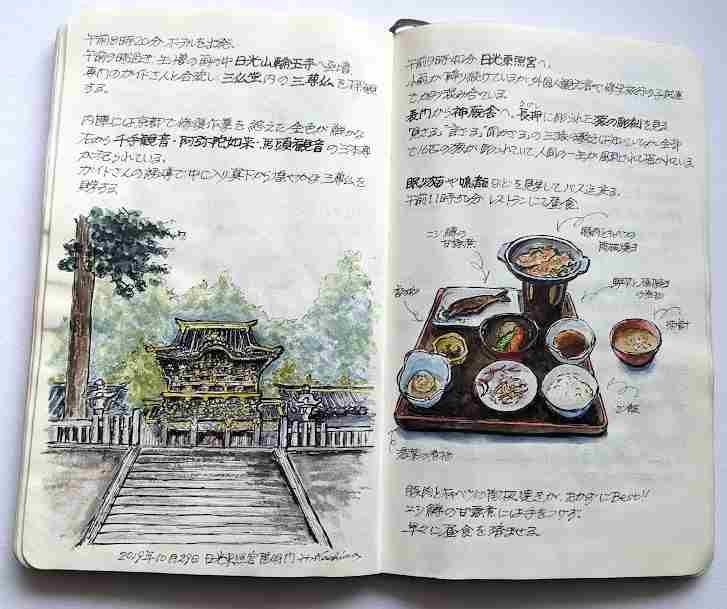 午前8時20分 ホテルを出発。
午前9時過ぎ 生憎の雨の中 日光山輪王寺へ到着
専門のガイドさんと合流し 三仏堂内の三尊仏を
する。
内陣には京都で修復作業を終えた金色が静かな
右から千手観音・阿弥陀如来・馬頭観音の三本尊
が祀られている。
ガイドさんの誘導で中に入り真下から 三尊仏を
見学する。
2019年10月29日 日光東照宮陽明門 H.Kashima
午前9時45分 日光東照宮へ。
小雨が降り続けているが、外国人観光客で修学旅行の子供達
でかなり混み合っている。
表門から神厩舎へ。長押に彫られた猿の彫刻を見る
全部
で16匹の猿が彫られていて、人間の一生が風刺されて描かれている
眠り猫や鳴龍などを見学してバスに戻る。
午前11時50分 レストランにて昼食
ニジ鱒の
甘露煮
豚肉とキャベツの
陶板焼き
味噌汁
ご飯
豚肉とキャベツの陶板焼きが、おかずにBest!!
ニジ鱒の甘露煮には手をつけず。
早くに昼食を済ませる。